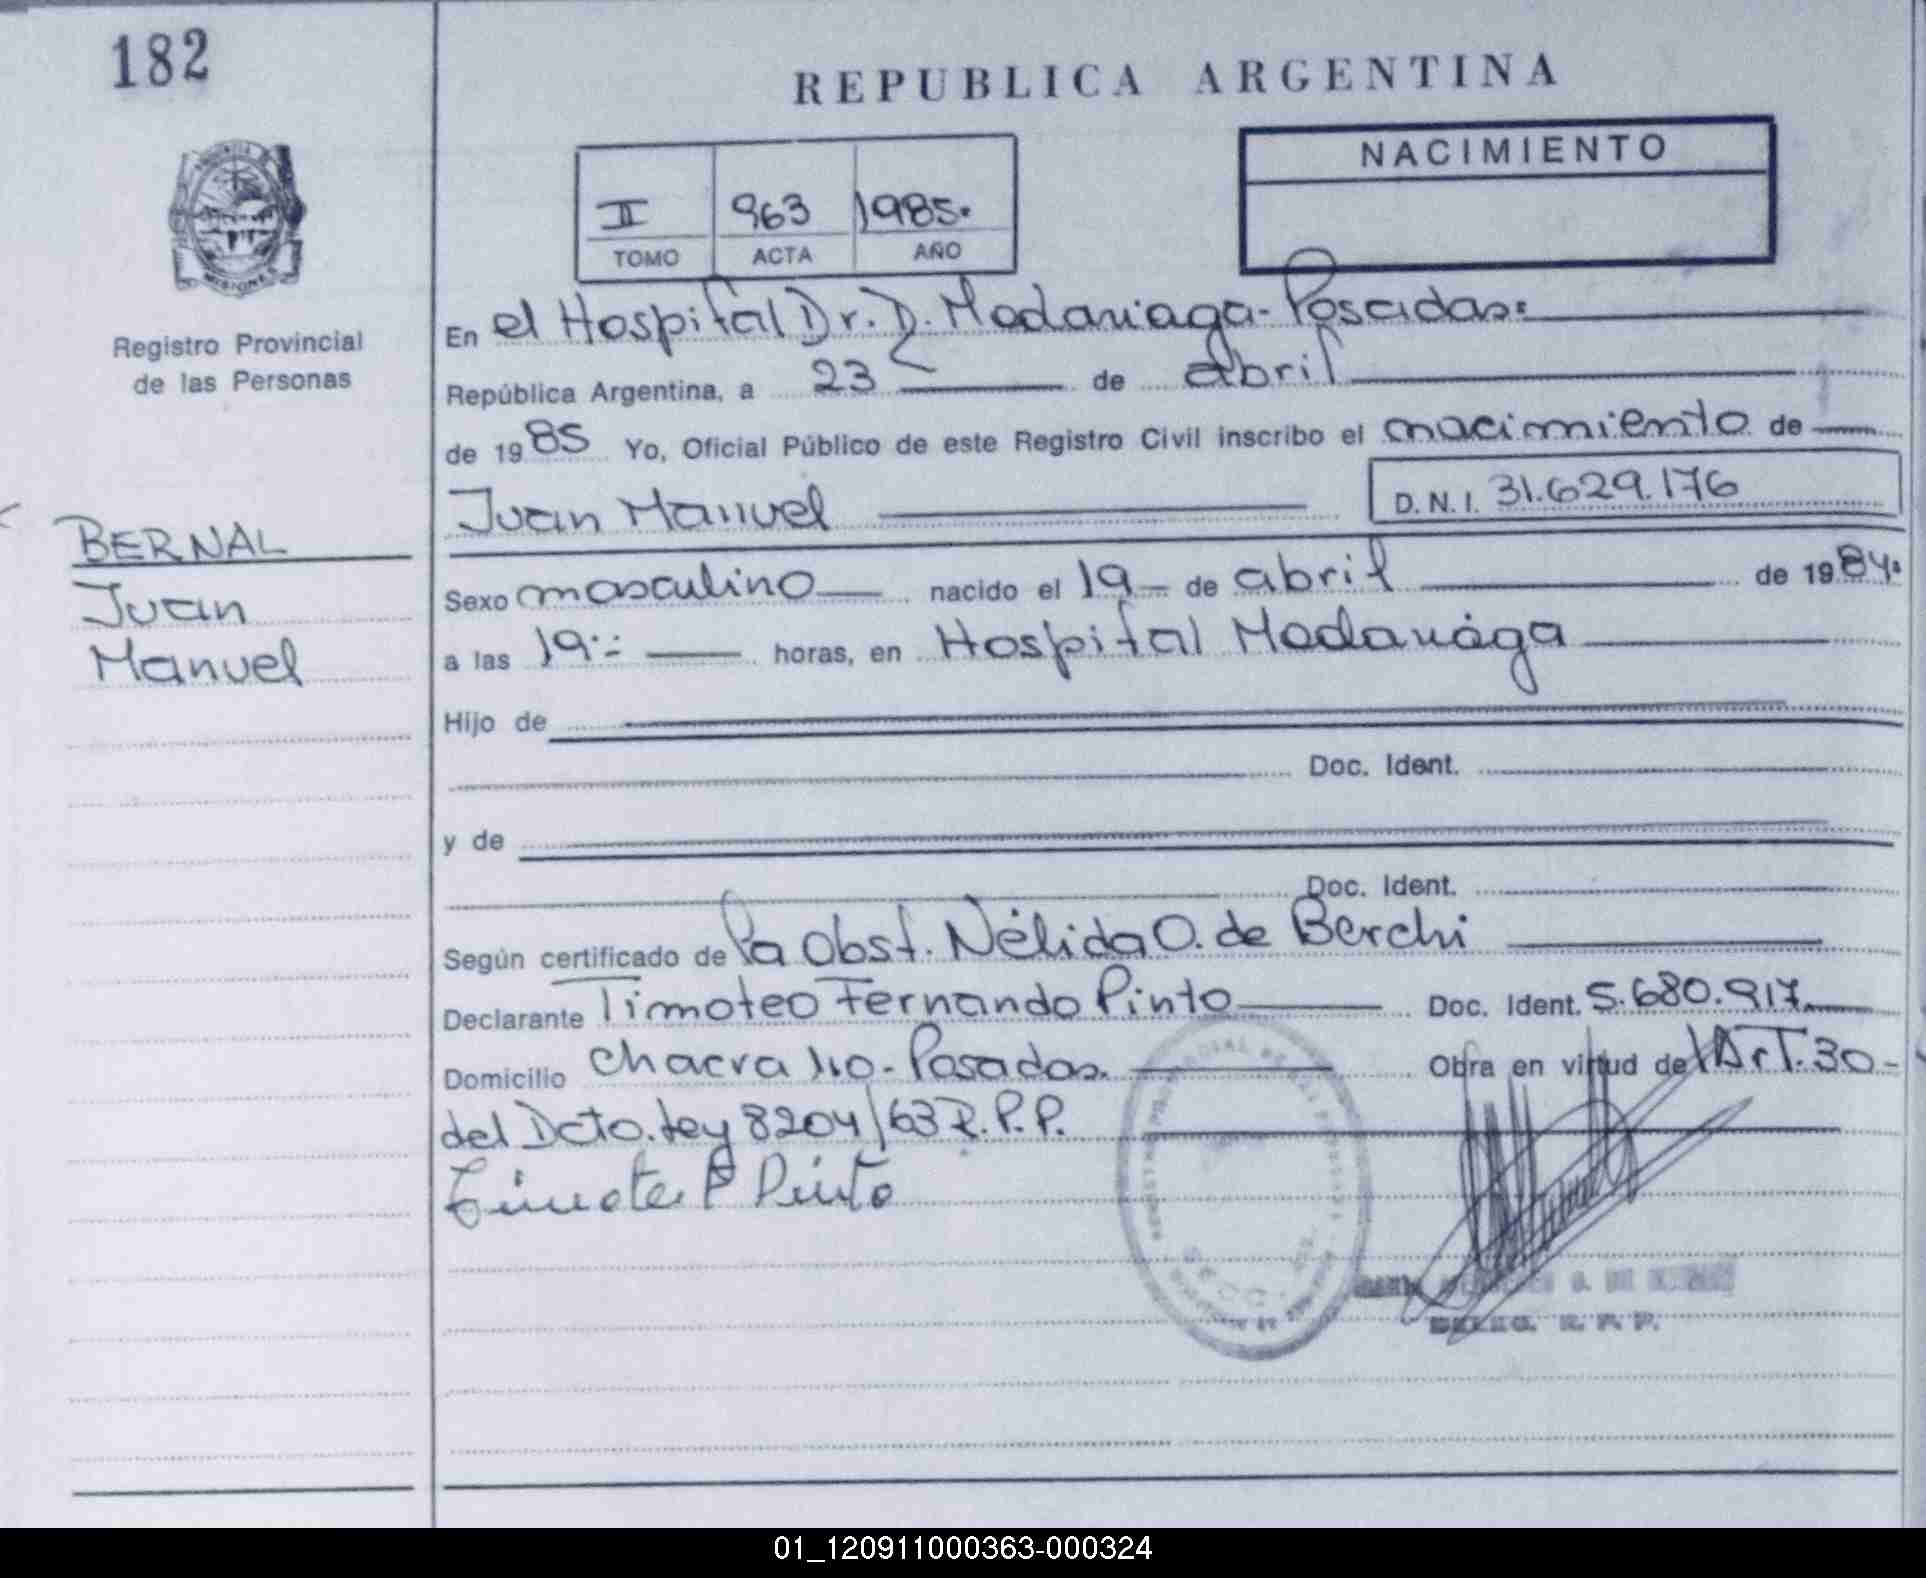 182
REPUBLICA ARGENTINA
NACIMIENTO
II 963 1985.
TOMO ACTA AÑO
MISIONES
Registro Provincial
de las Personas
En el Hospital Dr. D. Madariaga - Posadas:
República Argentina, a 23 de abril
de 1985 Yo, Oficial Público de este Registro Civil inscribo el nacimiento de
Juan Manuel D. N. I. 31.629.176
BERNAL
Juan
Manuel
Sexo masculino nacido el 19 de abril de 1984.
a las 19:- horas, en Hospital Madariaga
Hijo de
Doc. Ident.
y de
Doc. Ident.
Según certificado de la Obst. Nélida O. de Berchi
Declarante Timoteo Fernando Pinto Doc. Ident. 5.680.917.
Domicilio Chacra 110 - Posadas. Obra en virtud del Art. 30 -
del Dcto. Ley 8204/63 R.P.P.
Timoteo F Pinto
R. P. P.
01_120911000363-000324